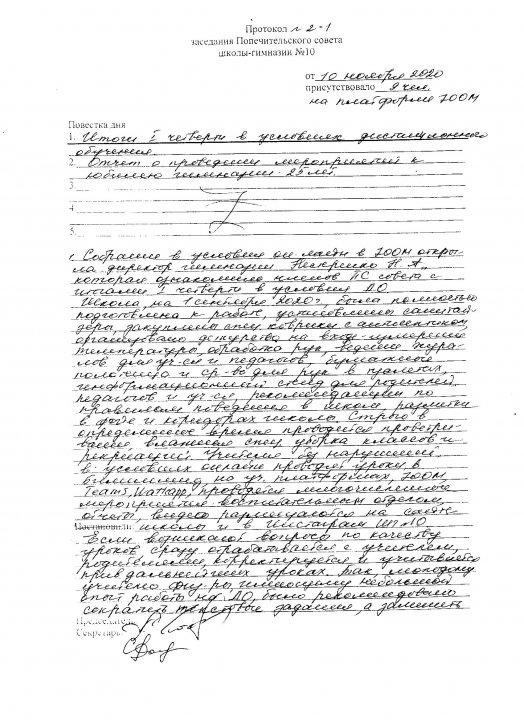 Протокол № 2-1
заседания Попечительского совета
школы-гимназии №10
от 10 ноября 2020
присутствовало 9 чел.
на платформе ZOOM
Повестка дня
1. Итоги I четверти в условиях дистанционного
обучения.
2. Отчет о проведении мероприятий к
юбилею гимназии 25 лет.
3
4
5
1. Собрание в условия он лайн в ZOOM откры-
ла директор гимназии Н. А.,
которая ознакомила членов ПС совета с
итогами I четверти в условия ДО
Школа, на 1 сентября 2020г, была полностью
подготовлена к работе, установлены санитай-
зеры, закуплены спец. коврики с антисептиком,
организовано дежурство на входе-измерение
температуры, обработка рук, ведение журна-
лов для уч-ся и педагогов, бумажные
полотенца и ср-во для рук в туалетах,
информационный стенд для родителей,
педагогов и уч-ся, рекомендации по
правилам поведения в школе, разметки
в фойе и коридорах школы. Строго в
определенное время проводится проветри-
вание, влажная спец. уборка классов и
рекреаций. Учителя без нарушений
в условиях онлайн проводят уроки в
на уч. платформах, ZOOM,
Teams, Watsapp, проводятся многочисленные
мероприятия воспитательным отделом,
отчеты, видео размещаются на сайте
Постановили: школы и в Инстаграм ШГ 10
Если возникают вопросы по качеству
уроков сразу отрабатывается с учителем,
родителями, корректируется и учитывается
при дальнейших уроках. Так, молодому
учителю физ-ры, имеющему небольшой
опыт работы на ДО, было рекомендовано
сократить текстовые задания, а заменить
Председатель
Секретарь